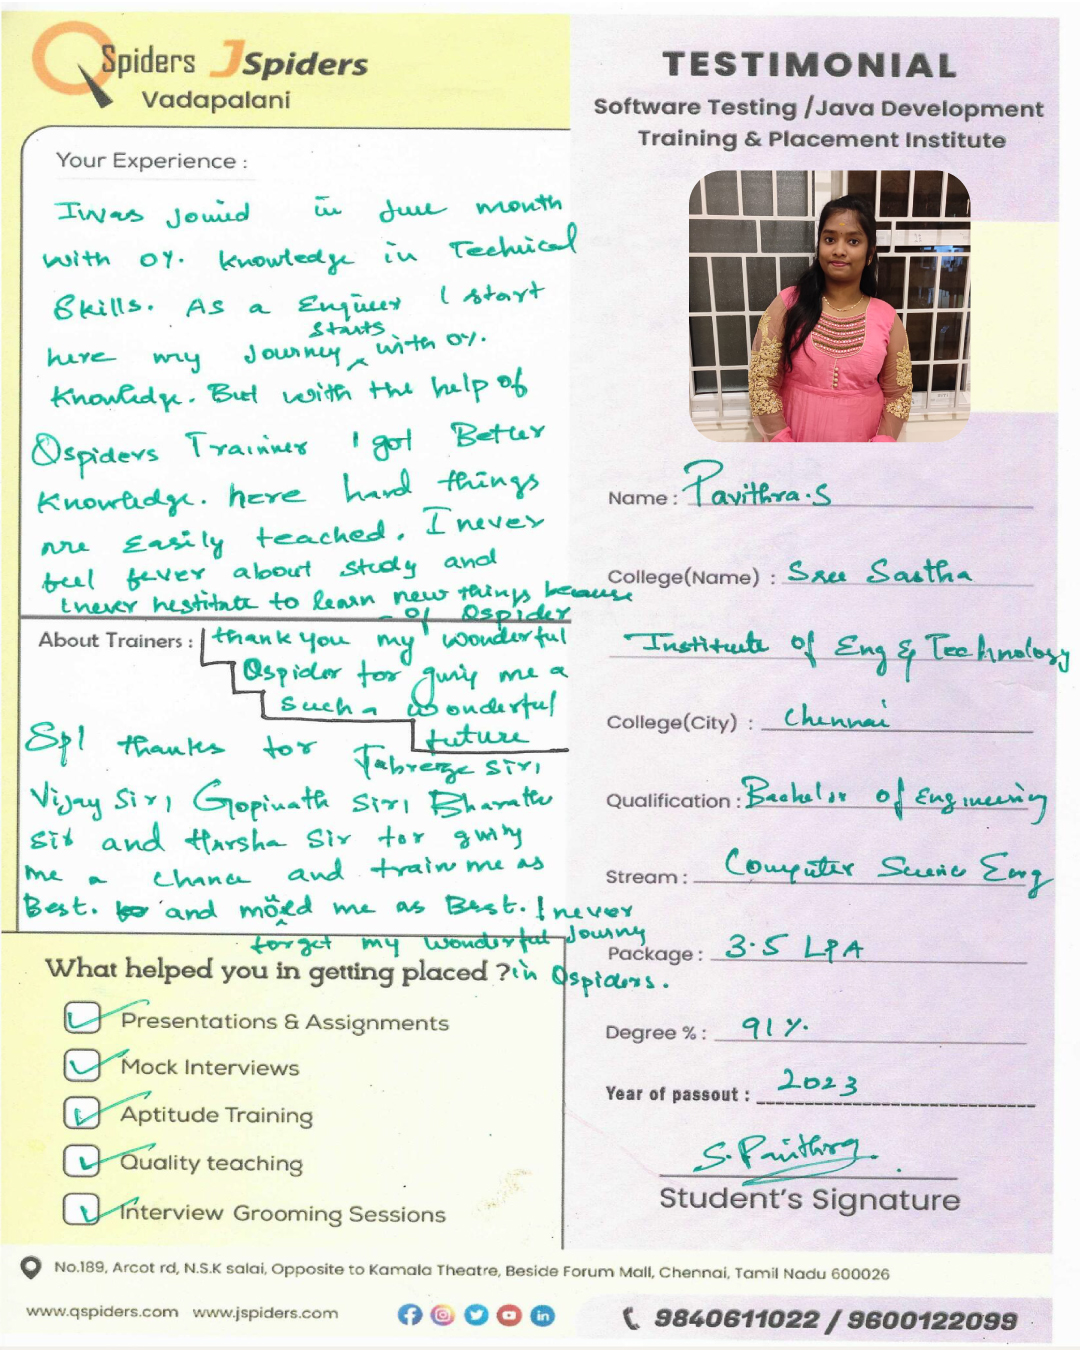 QSpiders JSpiders
Vadapalani
TESTIMONIAL
Software Testing /Java Development
Training & Placement Institute
Your Experience :
I was Joined in June month
with 0%. knowledge in Techical
Skills. As a Engineer I start
here my Journey starts with 0%.
Knowledge. But with the help of
Qspiders Trainner I got Better
Knowledge. here hard things
are Easily teached. I never
feel fever about study and
I never hestitate to learn new things because
of Qspider
About Trainers :
thank you my wonderful
Qspider for giving me a
such a wonderful
future
Spl thanks for Tabrezge Sir,
Vijay Sir, Gopinath Sir, Bharath
Sir and Harsha Sir for giving
me a chance and train me as
Best. and mold me as Best. I never
forget my wonderful Journy
in Qspiders.
What helped you in getting placed ?
Presentations & Assignments
Mock Interviews
Aptitude Training
Quality teaching
Interview Grooming Sessions
Name : Pavithra.S
College(Name) : Sree Sastha
Institute of Eng & Technology
College(City) : Chennai
Qualification : Bachelor of Engineering
Stream : Computer Science Eng
Package : 3.5 LPA
Degree % : 91%.
Year of passout : 2023
S. Pavithra.
Student's Signature
No.189, Arcot rd, N.S.K salai, Opposite to Kamala Theatre, Beside Forum Mall, Chennai, Tamil Nadu 600026
www.qspiders.com www.jspiders.com
9840611022 / 9600122099